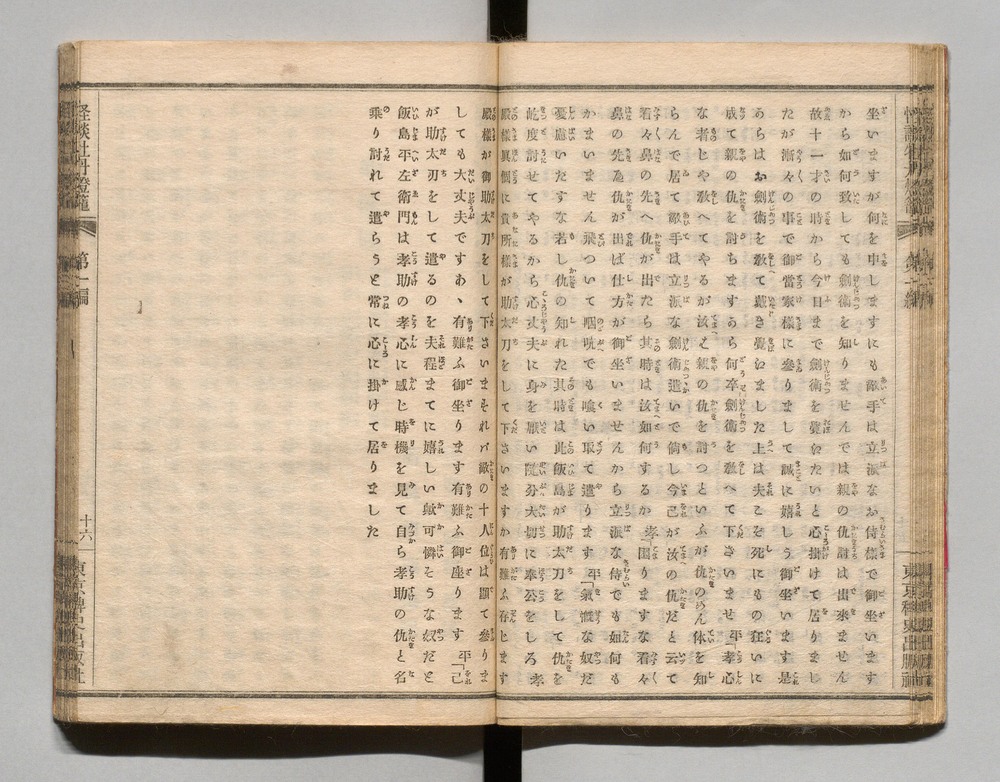 坐いますが何を申しますにも敵手は立派なお侍様で御坐います
から如何致しても劔術を知りませんでは親の仇討は出來ません
故十一才の時から今日まで劔術を覺たいと心掛けて居りまし
たが漸々の事で御當家様に參りまして誠に嬉しう御坐います是
からはお劔術を敎て戴き覺ました上は夫こそ死にもの狂いに
成て親の仇を討ちますから何卒劔術を敎へて下さいませ平孝心
な者じや敎へてやるが汝は親の仇を討つといふが仇のめん体を知
らんで居て敵手は立派な劔術遣いで倘し今己が汝の仇だと云て
着々鼻の先へ仇が出たら其時は汝如何するか孝「困りますな着々
鼻の先へ仇が出れば仕方が御坐いませんから立派な侍でも如何も
かまいません飛ついて咽吭でも喰い取て遣ります平「氣慨な奴だ
憂慮いたすな若し仇の知れた其時は此飯島が助太刀をして仇を
屹度討せてやるから心丈夫に身を厭い隨分大切に奉公をしろ孝
殿様眞個に貴所様が助太刀をして下さいますか有難ふ存じます
殿様が御助太刀をして下さいまそれバ敵の十人位は顯て參りま
しても大丈夫ですあゝ有難ふ御坐ります有難ふ御座ります平「己
が助太刀をして遣るのを夫程までに嬉しい歟可憐そうな奴だと
飯島平左衛門は孝助の孝心に感じ時機を見て自ら孝助の仇と名
乘り討れて遣らうと常に心に掛けて居りました
怪談牡丹燈籠
第一編
十六
東京稗史出版社